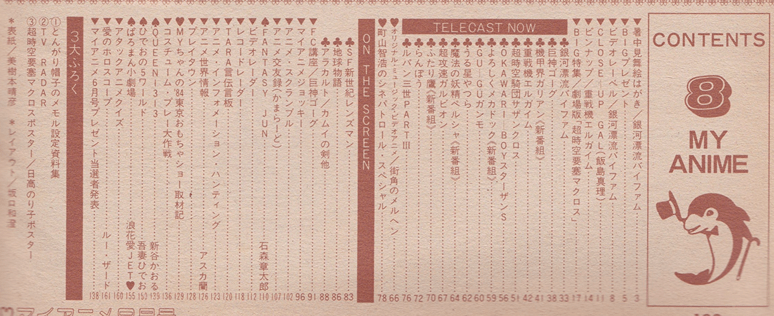 CONTENTS
8
MY
ANIME
暑中見舞絵はがき/銀河漂流バイファム 3
BIGプレゼント 5
ビデオレーベル/銀河漂流バイファム 8
CLOSE UP GAL/飯島真理 11
ピンナップ/重戦機エルガイム 14
BIG特集/劇場版「超時空要塞マクロス」 17
TELECAST NOW
♣銀河漂流バイファム 33
♣巨神ゴーグ 38
♣重戦機エルガイム 41
♣機甲界ガリアン《新番組》 42
♣超時空騎団サザンクロス 51
♣OKAWARI-BOYスターザンS 56
♣よろしくメカドック《新番組》 59
♣GU-GUガンモ 60
♣うる星やつら 62
♣魔法の妖精ペルシャ《新番組》 64
♣超攻速ガルビオン 67
♣ふたり鷹《新番組》 70
♣らんぽう 72
♣ルパン三世PARTⅢ 74
オリジナル・ミュージック・ビデオアニメ/街角のメルヘン 76
♥町山智のシネパトロール・スペシャル 78
ON THE SCREEN
♣SF新世紀レンズマン 83
♣地球物語 86
♣アルテ/カムイの剣他 88
FC講座/巨神ゴーグ 91
マイアニメジョッキー 96
アニメ・スクランブル 102
アニメ交友録〈かまらーど〉 107
♠FANTASY JUN 石森章太郎 110
ビデオメイト 112
レコードレーダー 118
TARA宣伝言板 120
アニメ・インフォメーション・ハンティング 123
アニメ世界情報 126
♠ブレイクタウン アスカ蘭 128
♥MYちゃんの'84東京おもちゃショー取材記 129
コスチューム・プレー大作戦 136
♠QUEEN1313 新谷かおる 139
♠ひでおの5ワールド 吾妻ひでお 150
♠ぱろまん小劇場 浪花愛JET♥ 155
アタックアニメクイズ 160
愛のホロスコープ ルー・ザード 161
マイアニメ6月号プレゼント当選者発表 138
3大ふろく
①とんがり帽子のメモル設定資料集
②TV RADAR
③超時空要塞マクロスポスター/日高のり子ポスター
*表紙/美樹本晴彦 *レイアウト/坂口和澄